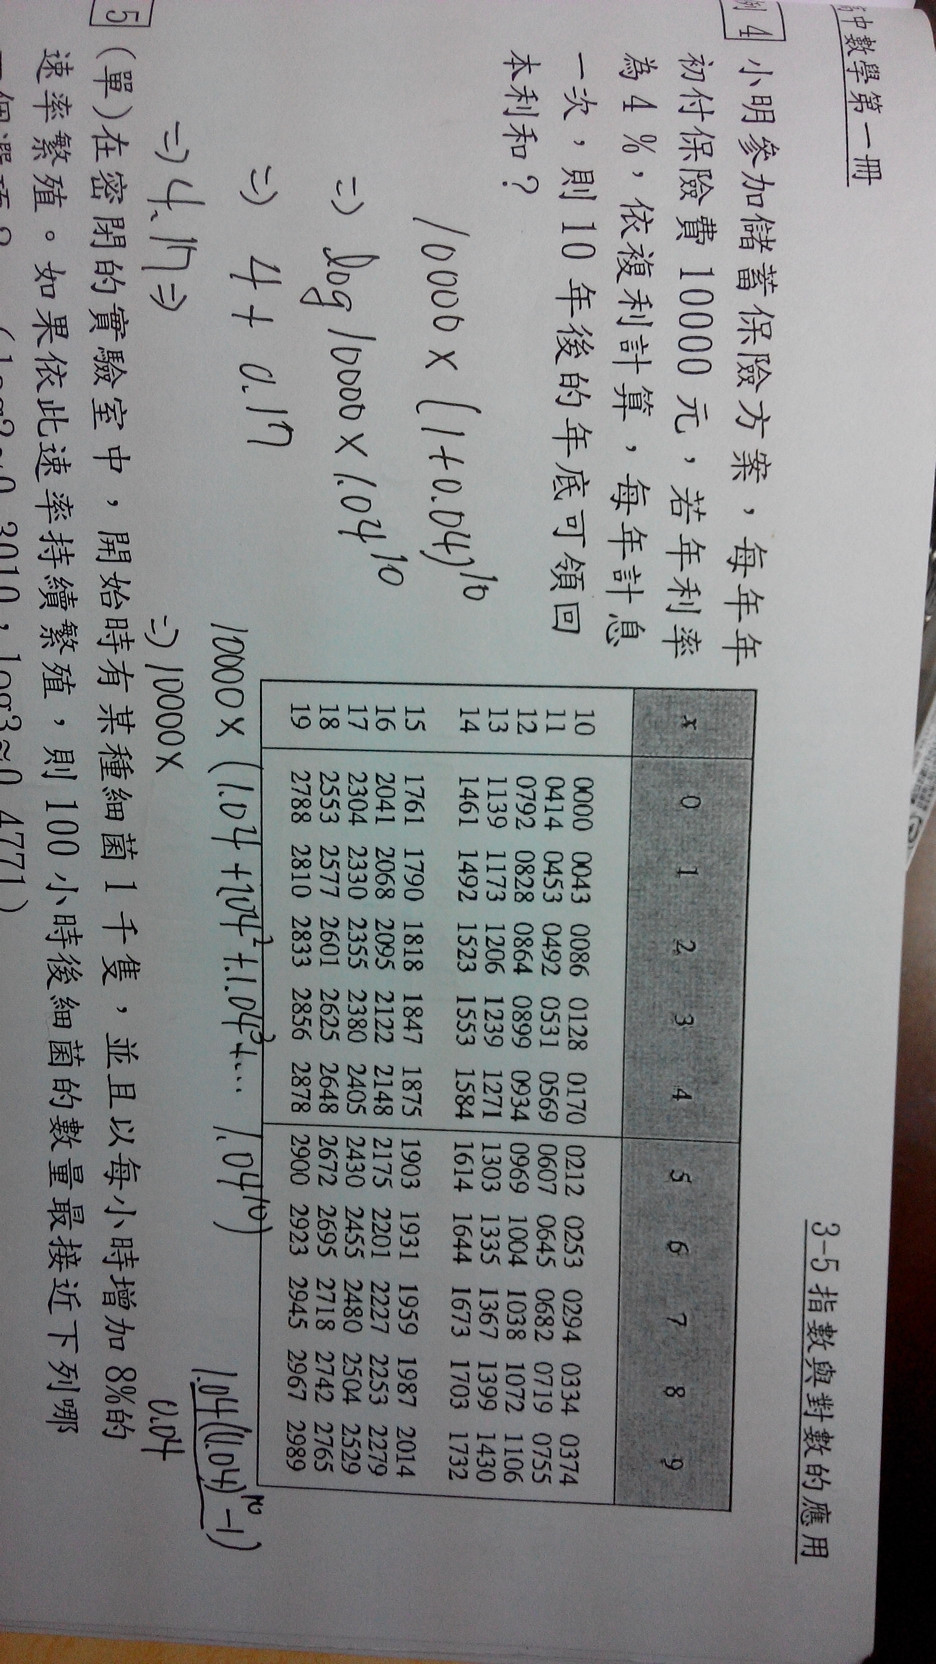 高中數學第一冊
3-5 指數與對數的應用
例 4 小明參加儲蓄保險方案，每年年
初付保險費 10000 元，若年利率
為 4 %，依複利計算，每年計息
一次，則 10 年後的年底可領回
本利和？
x 0 1 2 3 4 5 6 7 8 9
10 0000 0043 0086 0128 0170 0212 0253 0294 0334 0374
11 0414 0453 0492 0531 0569 0607 0645 0682 0719 0755
12 0792 0828 0864 0899 0934 0969 1004 1038 1072 1106
13 1139 1173 1206 1239 1271 1303 1335 1367 1399 1430
14 1461 1492 1523 1553 1584 1614 1644 1673 1703 1732
15 1761 1790 1818 1847 1875 1903 1931 1959 1987 2014
16 2041 2068 2095 2122 2148 2175 2201 2227 2253 2279
17 2304 2330 2355 2380 2405 2430 2455 2480 2504 2529
18 2553 2577 2601 2625 2648 2672 2695 2718 2742 2765
19 2788 2810 2833 2856 2878 2900 2923 2945 2967 2989
10000 × (1+0.04)^10
⇒ log 10000 × 1.04^10
⇒ 4 + 0.17
⇒ 4.17 ⇒
10000 × (1.04 + 1.04^2 + 1.04^3 + ... 1.04^10)
⇒ 10000 ×
1.04((1.04)^10 - 1)
0.04
5 (單) 在密閉的實驗室中，開始時有某種細菌 1 千隻，並且以每小時增加 8%的
速率繁殖。如果依此速率持續繁殖，則 100 小時後細菌的數量最接近下列哪
一個選項？ (log2≈0.3010，log3≈0.4771)